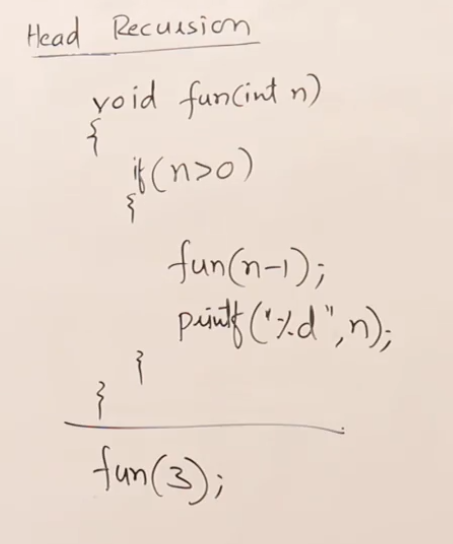 Head Recursion
void fun(int n)
{
if(n>0)
{
fun(n-1);
printf("%d",n);
}
}
fun(3);